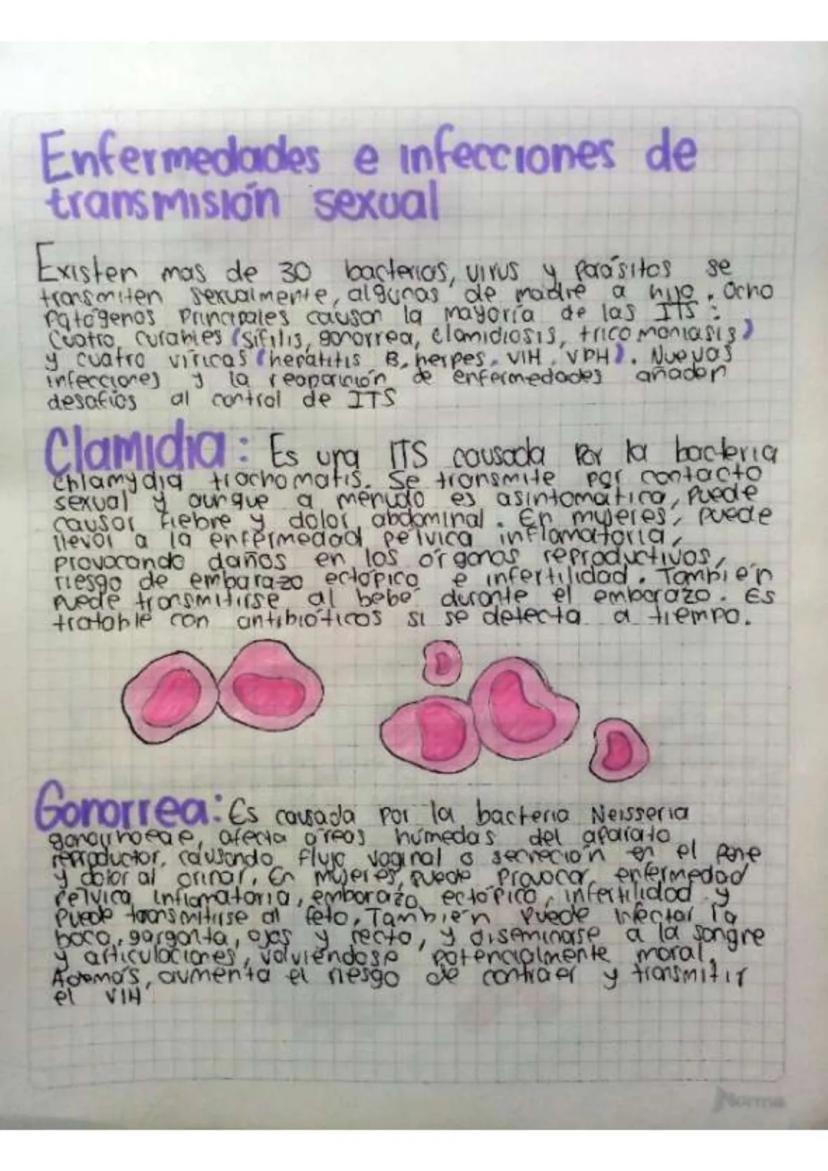 Enfermedades e infecciones de
transmisión sexual
Existen mas de 30 bacterias, virus y parásitos se
transmiten sexualmente, algunas de madre a hijo. Ocho
patógenos principales causan la mayoría de las ITS:
Cuatro curables (sífilis, gonorrea, clamidiosis, tricomoniasis)
y cuatro víricas (hepatitis B, herpes, VIH, VPH). Nuevas
infecciones y la reaparición de enfermedades añaden
desafíos al control de ITS
Clamidia: Es una ITS causada por la bacteria
chlamydia trachomatis. Se transmite por contacto
sexual y aunque a menudo es asintomática, puede
causar fiebre y dolor abdominal. En mujeres, puede
llevar a la enfermedad pélvica inflamatoria,
provocando daños en los órganos reproductivos,
riesgo de embarazo ectópico e infertilidad. También
puede transmitirse al bebé durante el embarazo. Es
tratable con antibióticos si se detecta a tiempo.
Gonorrea: Es causada por la bacteria Neisseria
gonorrhoeae, afecta áreas húmedas del aparato
reproductor, causando flujo vaginal o secreción en el pene
y dolor al orinar. En mujeres, puede provocar enfermedad
pélvica inflamatoria, embarazo ectópico, infertilidad y
puede transmitirse al feto. También puede infectar la
boca, garganta, ojos y recto, y diseminarse a la sangre
y articulaciones, volviéndose potencialmente moral.
Además, aumenta el riesgo de contraer y transmitir
el VIH
Norma